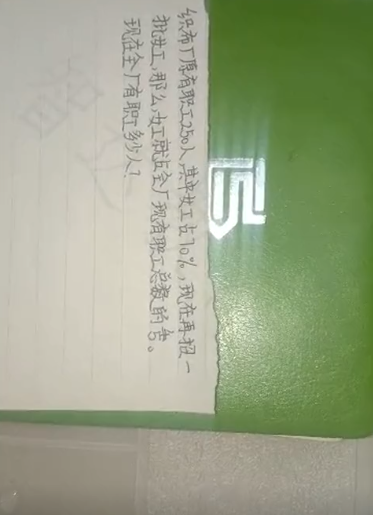 织布厂原有职工250人,其中女工占70%,现在再招一
批女工,那么,女工就占全厂现有职工总数的4/5。
现在全厂有职工多少人?